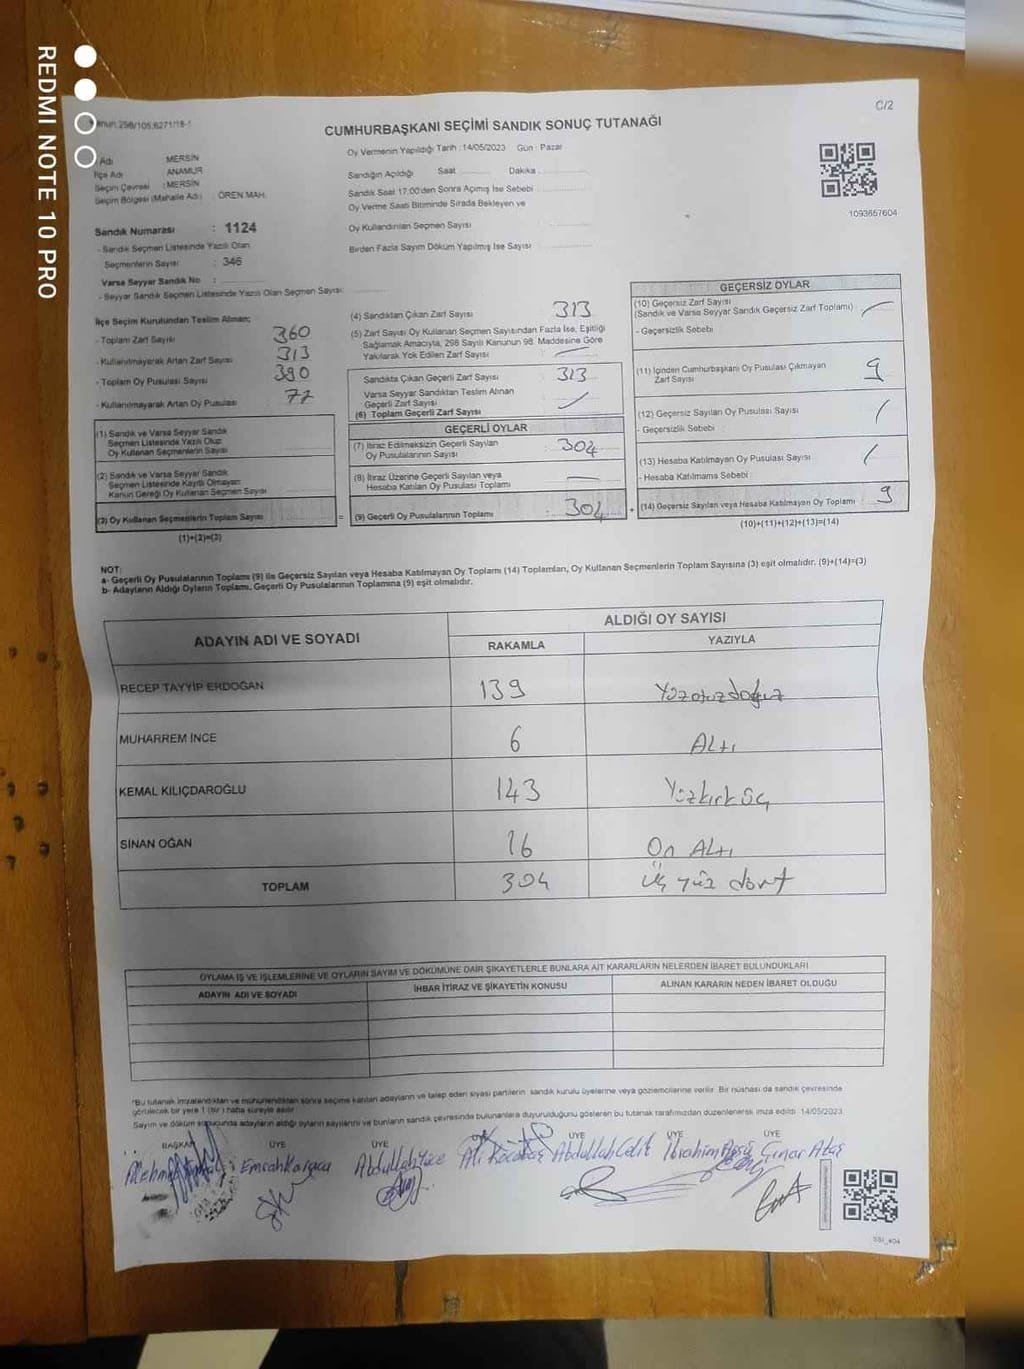 REDMI NOTE 10 PRO
C/2
CUMHURBAŞKANI SEÇİMİ SANDIK SONUÇ TUTANAĞI
298/105;6271/18-1
Adı MERSİN
İlçe Adı ANAMUR
Seçim Çevresi : MERSİN
Seçim Bölgesi (Mahalle Adı) : ÖREN MAH.
Sandık Numarası : 1124
- Sandık Seçmen Listesinde Yazılı Olan
Seçmenlerin Sayısı : 346
Varsa Seyyar Sandık No :
- Seyyar Sandık Seçmen Listesinde Yazılı Olan Seçmen Sayısı:
Oy Vermenin Yapıldığı Tarih : 14/05/2023 Gün : Pazar
Sandığın Açıldığı Saat Dakika
Sandık Saat 17:00'den Sonra Açımış İse Sebebi
Oy Verme Saati Bitiminde Sırada Bekleyen ve
Oy Kullandırılan Seçmen Sayısı
Birden Fazla Sayım Döküm Yapılmış İse Sayısı
1093657604
İlçe Seçim Kurulundan Teslim Alınan;
- Toplam Zarf Sayısı 360
- Kullanılmayarak Artan Zarf Sayısı 313
- Toplam Oy Pusulası Sayısı 390
- Kullanılmayarak Artan Oy Pusulası 77
(1) Sandık ve Varsa Seyyar Sandık
Seçmen Listesinde Yazılı Olup
Oy Kullanan Seçmenlerin Sayısı
(2) Sandık ve Varsa Seyyar Sandık
Seçmen Listesinde Kayıtlı Olmayan
Kanun Gereği Oy Kullanan Seçmen Sayısı
(3) Oy Kullanan Seçmenlerin Toplam Sayısı =
(1)+(2)=(3)
(4) Sandıktan Çıkan Zarf Sayısı 313
(5) Zarf Sayısı Oy Kullanan Seçmen Sayısından Fazla İse, Eşitliği
Sağlamak Amacıyla, 298 Sayılı Kanunun 98. Maddesine Göre
Yakılarak Yok Edilen Zarf Sayısı
Sandıkta Çıkan Geçerli Zarf Sayısı 313
Varsa Seyyar Sandıktan Teslim Alınan
Geçerli Zarf Sayısı
(6) Toplam Geçerli Zarf Sayısı
GEÇERLİ OYLAR
(7) İtiraz Edilmeksizin Geçerli Sayılan
Oy Pusulalarının Sayısı : 304
(8) İtiraz Üzerine Geçerli Sayılan veya
Hesaba Katılan Oy Pusulası Toplamı
(9) Geçerli Oy Pusulalarının Toplamı : 304 +
GEÇERSİZ OYLAR
(10) Geçersiz Zarf Sayısı
(Sandık ve Varsa Seyyar Sandık Geçersiz Zarf Toplamı)
- Geçersizlik Sebebi
(11) İçinden Cumhurbaşkanı Oy Pusulası Çıkmayan
Zarf Sayısı 9
(12) Geçersiz Sayılan Oy Pusulası Sayısı
- Geçersizlik Sebebi
(13) Hesaba Katılmayan Oy Pusulası Sayısı
- Hesaba Katılmama Sebebi
(14) Geçersiz Sayılan veya Hesaba Katılmayan Oy Toplamı 9
(10)+(11)+(12)+(13)=(14)
NOT:
a- Geçerli Oy Pusulalarının Toplamı (9) ile Geçersiz Sayılan veya Hesaba Katılmayan Oy Toplamı (14) Toplamları, Oy Kullanan Seçmenlerin Toplam Sayısına (3) eşit olmalıdır. (9)+(14)=(3)
b- Adayların Aldığı Oyların Toplamı, Geçerli Oy Pusulalarının Toplamına (9) eşit olmalıdır.
ADAYIN ADI VE SOYADI ALDIĞI OY SAYISI
RAKAMLA YAZIYLA
RECEP TAYYİP ERDOĞAN 139 Yüzotuzdokuz
MUHARREM İNCE 6 Altı
KEMAL KILIÇDAROĞLU 143 Yüzkırküç
SİNAN OĞAN 16 On Altı
TOPLAM 304 Üç yüz dört
OYLAMA İŞ VE İŞLEMLERİNE VE OYLARIN SAYIM VE DÖKÜMÜNE DAİR ŞİKAYETLERLE BUNLARA AİT KARARLARIN NELERDEN İBARET BULUNDUKLARI
ADAYIN ADI VE SOYADI İHBAR İTİRAZ VE ŞİKAYETİN KONUSU ALINAN KARARIN NEDEN İBARET OLDUĞU
"Bu tutanak imzalandıktan ve mühürlendikten sonra seçime katılan adayların ve talep eden siyasi partilerin sandık kurulu üyelerine veya gözlemcilerine verilir. Bir nüshası da sandık çevresinde
görülecek bir yere 1 (bir) hafta süreyle asılır.
Sayım ve döküm sonucunda adayların aldığı oyların sayılarını ve bunların sandık çevresinde bulunanlara duyurulduğunu gösteren bu tutanak tarafımızdan düzenlenerek imza edildi. 14/05/2023
BAŞKAN ÜYE ÜYE ÜYE ÜYE ÜYE ÜYE
Emrah Karaca Abdullah Yüce Ali Abdullah Çelik İbrahim Çınar Ataş